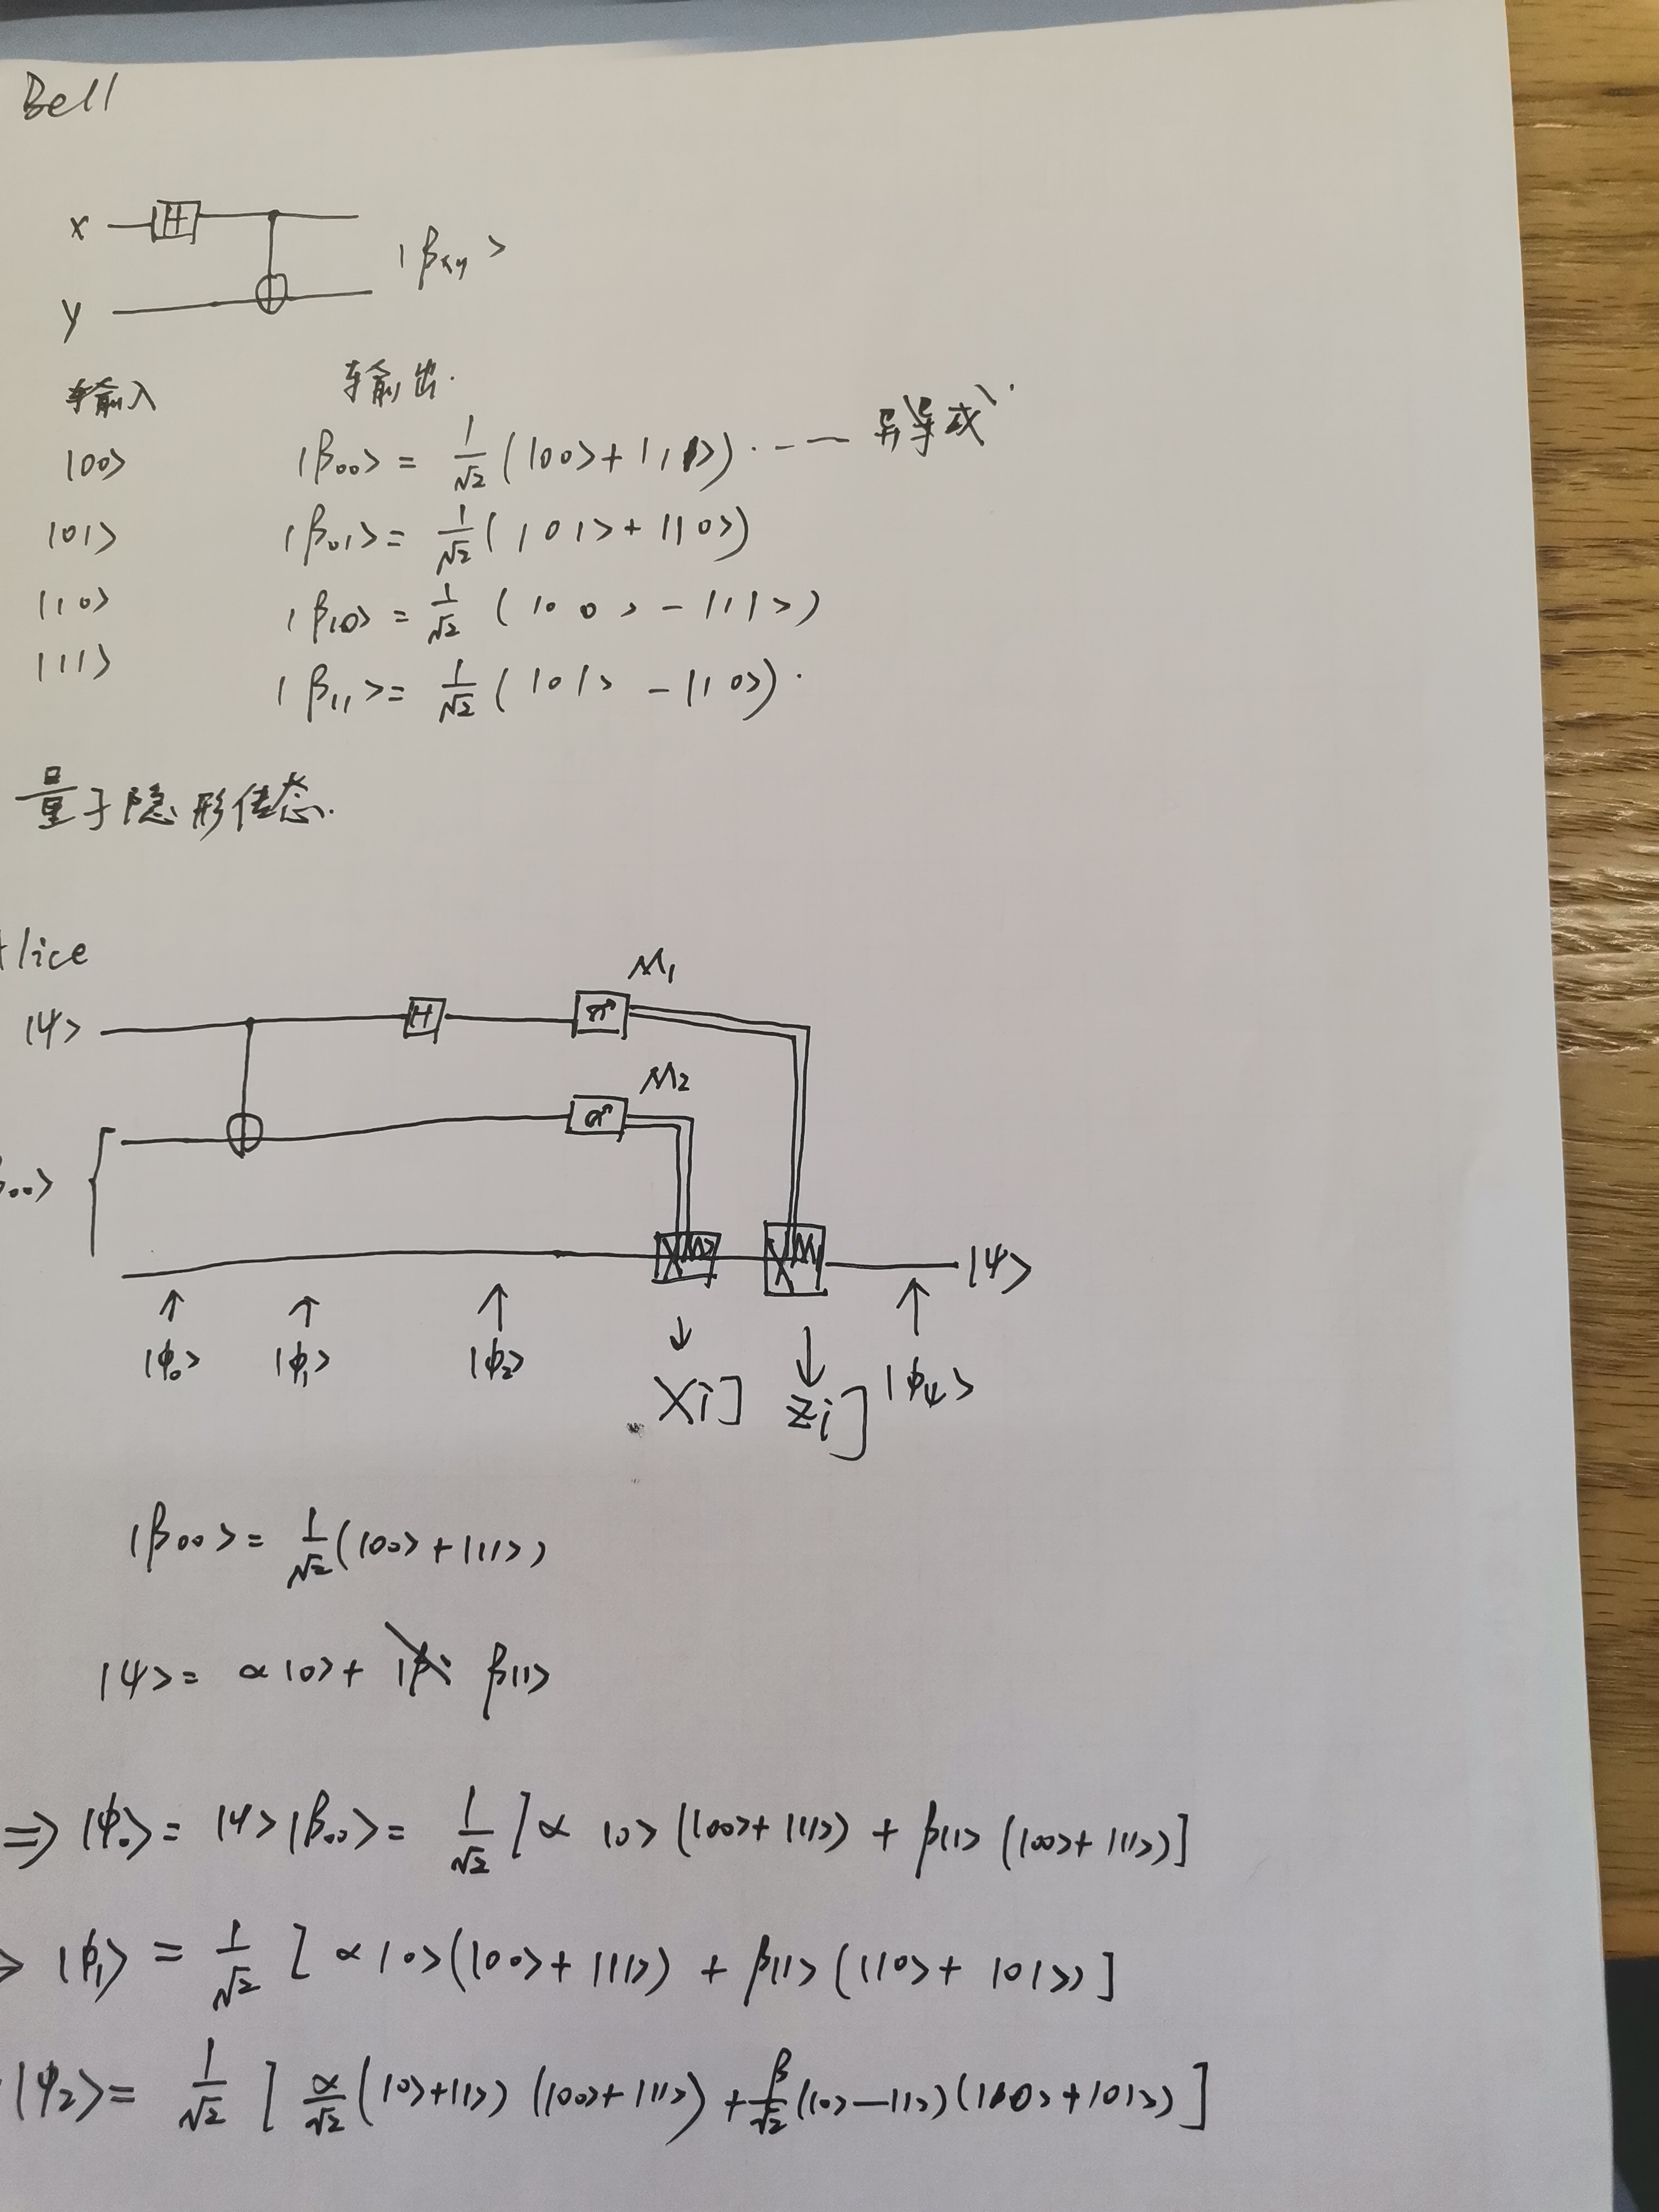 Bell
x H
|βxy>
y
输入 输出.
|00> |β00> = 1/√2 (|00>+|11>) ·-— 异或
|01> |β01> = 1/√2 (|01>+|10>)
|10> |β10> = 1/√2 (|00>-|11>)
|11> |β11> = 1/√2 (|01>-|10>).
量子隐形传态.
Alice
M1
|ψ> H
M2
β00>
X^M2 X^M1 |ψ>
↑ ↑ ↑ ↓ ↓ ↑
|φ0> |φ1> |φ2> Xi] Zi] |φ4>
|β00> = 1/√2 (|00>+|11>)
|ψ> = α|0> + β|1>
⇒ |φ0> = |ψ>|β00> = 1/√2 [α |0>(|00>+|11>) + β|1>(|00>+|11>)]
> |φ1> = 1/√2 [α|0>(|00>+|11>) + β|1>(|10>+|01>)]
|φ2> = 1/√2 [α/√2 (|0>+|1>)(|00>+|11>) + β/√2 (|0>-|1>)(|10>+|01>)]